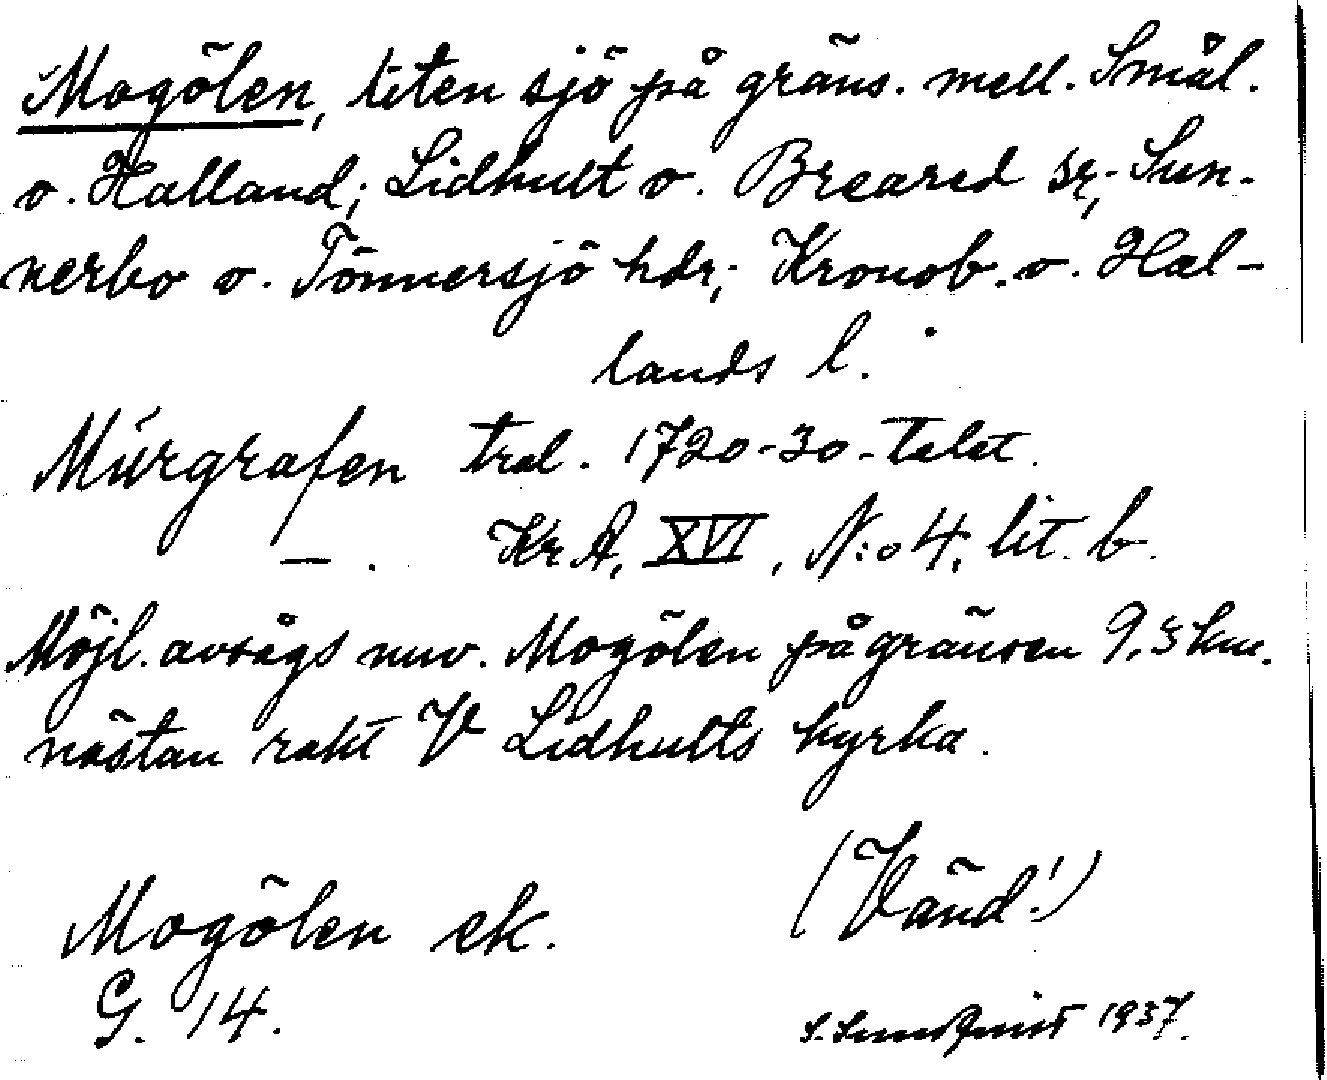 Mogölen, liten sjö på gräns. mell. Smål.
o. Halland; Lidhult o. Breared sr; Sun-
nerbo o. Tönnersjö hdr; Kronob. o. Hal-
lands l.
Mürgrafen tral. 1720-30-talet.
—. Kr A, XVI, N:o 4, lit. b.
Möjl. avsågs nuv. Mogölen på gränsen 9,5 km.
nästan rakt V Lidhults kyrka.
(Vänd!)
Mogölen ek.
G. 14.
S. Sundquist 1937.